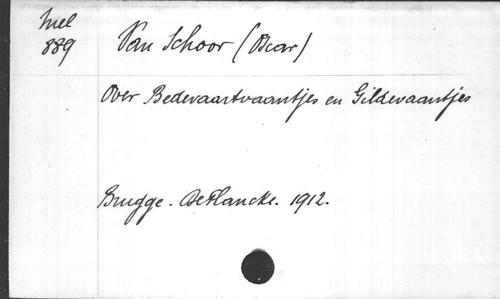 Mel
889
Van Schoor (Oscar)
Over Bedevaartvaantjes en Gildevaantjes
Brugge. De Plancke. 1912.